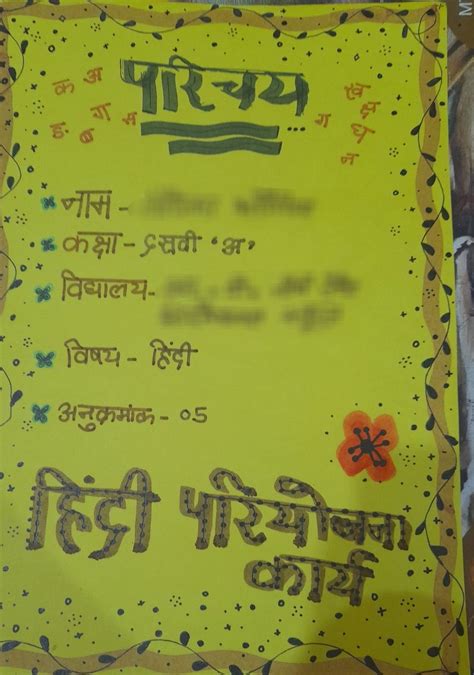 परिचय...
क अ
ङ ब ग स
ख क्ष घ
ग न
नाम -
कक्षा - दसवी 'अ'
विद्यालय-
विषय - हिंदी
अनुक्रमांक - ०5
हिंदी परियोजना
कार्य